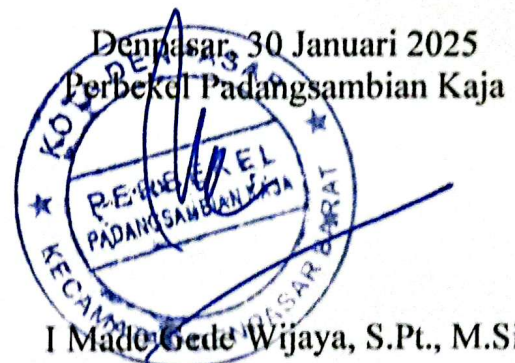 Denpasar, 30 Januari 2025
Perbekel Padangsambian Kaja
KOTA DENPASAR
PERBEKEL
PADANGSAMBIAN KAJA
KECAMATAN DENPASAR BARAT
I Made Gede Wijaya, S.Pt., M.Si